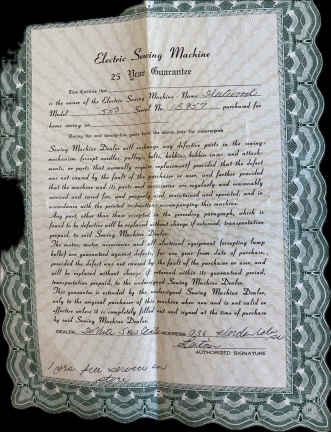 Electric Sewing Machine
25 Year Guarantee
This Certifies that
is the owner of the Electric Sewing Machine Name
Model 550 Serial No. 15957 purchased for
home sewing in
During the next twenty-five years from the above date the undersigned
Sewing Machine Dealer will exchange any defective parts in the sewing-
mechanism (except needles, pulleys, belts, bobbins, bobbin case, and attach-
ments, or parts that normally require replacement) provided, that the defect
was not caused by the fault of the purchaser or user, and further provided
that the machine and its parts and accessories are regularly and reasonably
serviced and cared for, and properly used, maintained and operated, and in
accordance with the printed instructions accompanying this machine.
Any part, other than those excepted in the preceding paragraph, which is
found to be defective will be replaced without charge if returned, transportation
prepaid, to said Sewing Machine Dealer.
The motor, motor accessories and all electrical equipment (excepting lamp
bulbs) are guaranteed against defects for one year from date of purchase,
provided the defect was not caused by the fault of the purchaser or user, and
will be replaced without charge if returned within its guaranteed period,
transportation prepaid, to the undersigned Sewing Machine Dealer.
This guarantee is extended by the undersigned Sewing Machine Dealer,
only to the original purchaser of this machine when new and is not valid or
effective unless it is completely filled out and signed at the time of purchase
by said Sewing Machine Dealer.
DEALER ADDRESS
AUTHORIZED SIGNATURE
1 yr free service in
store